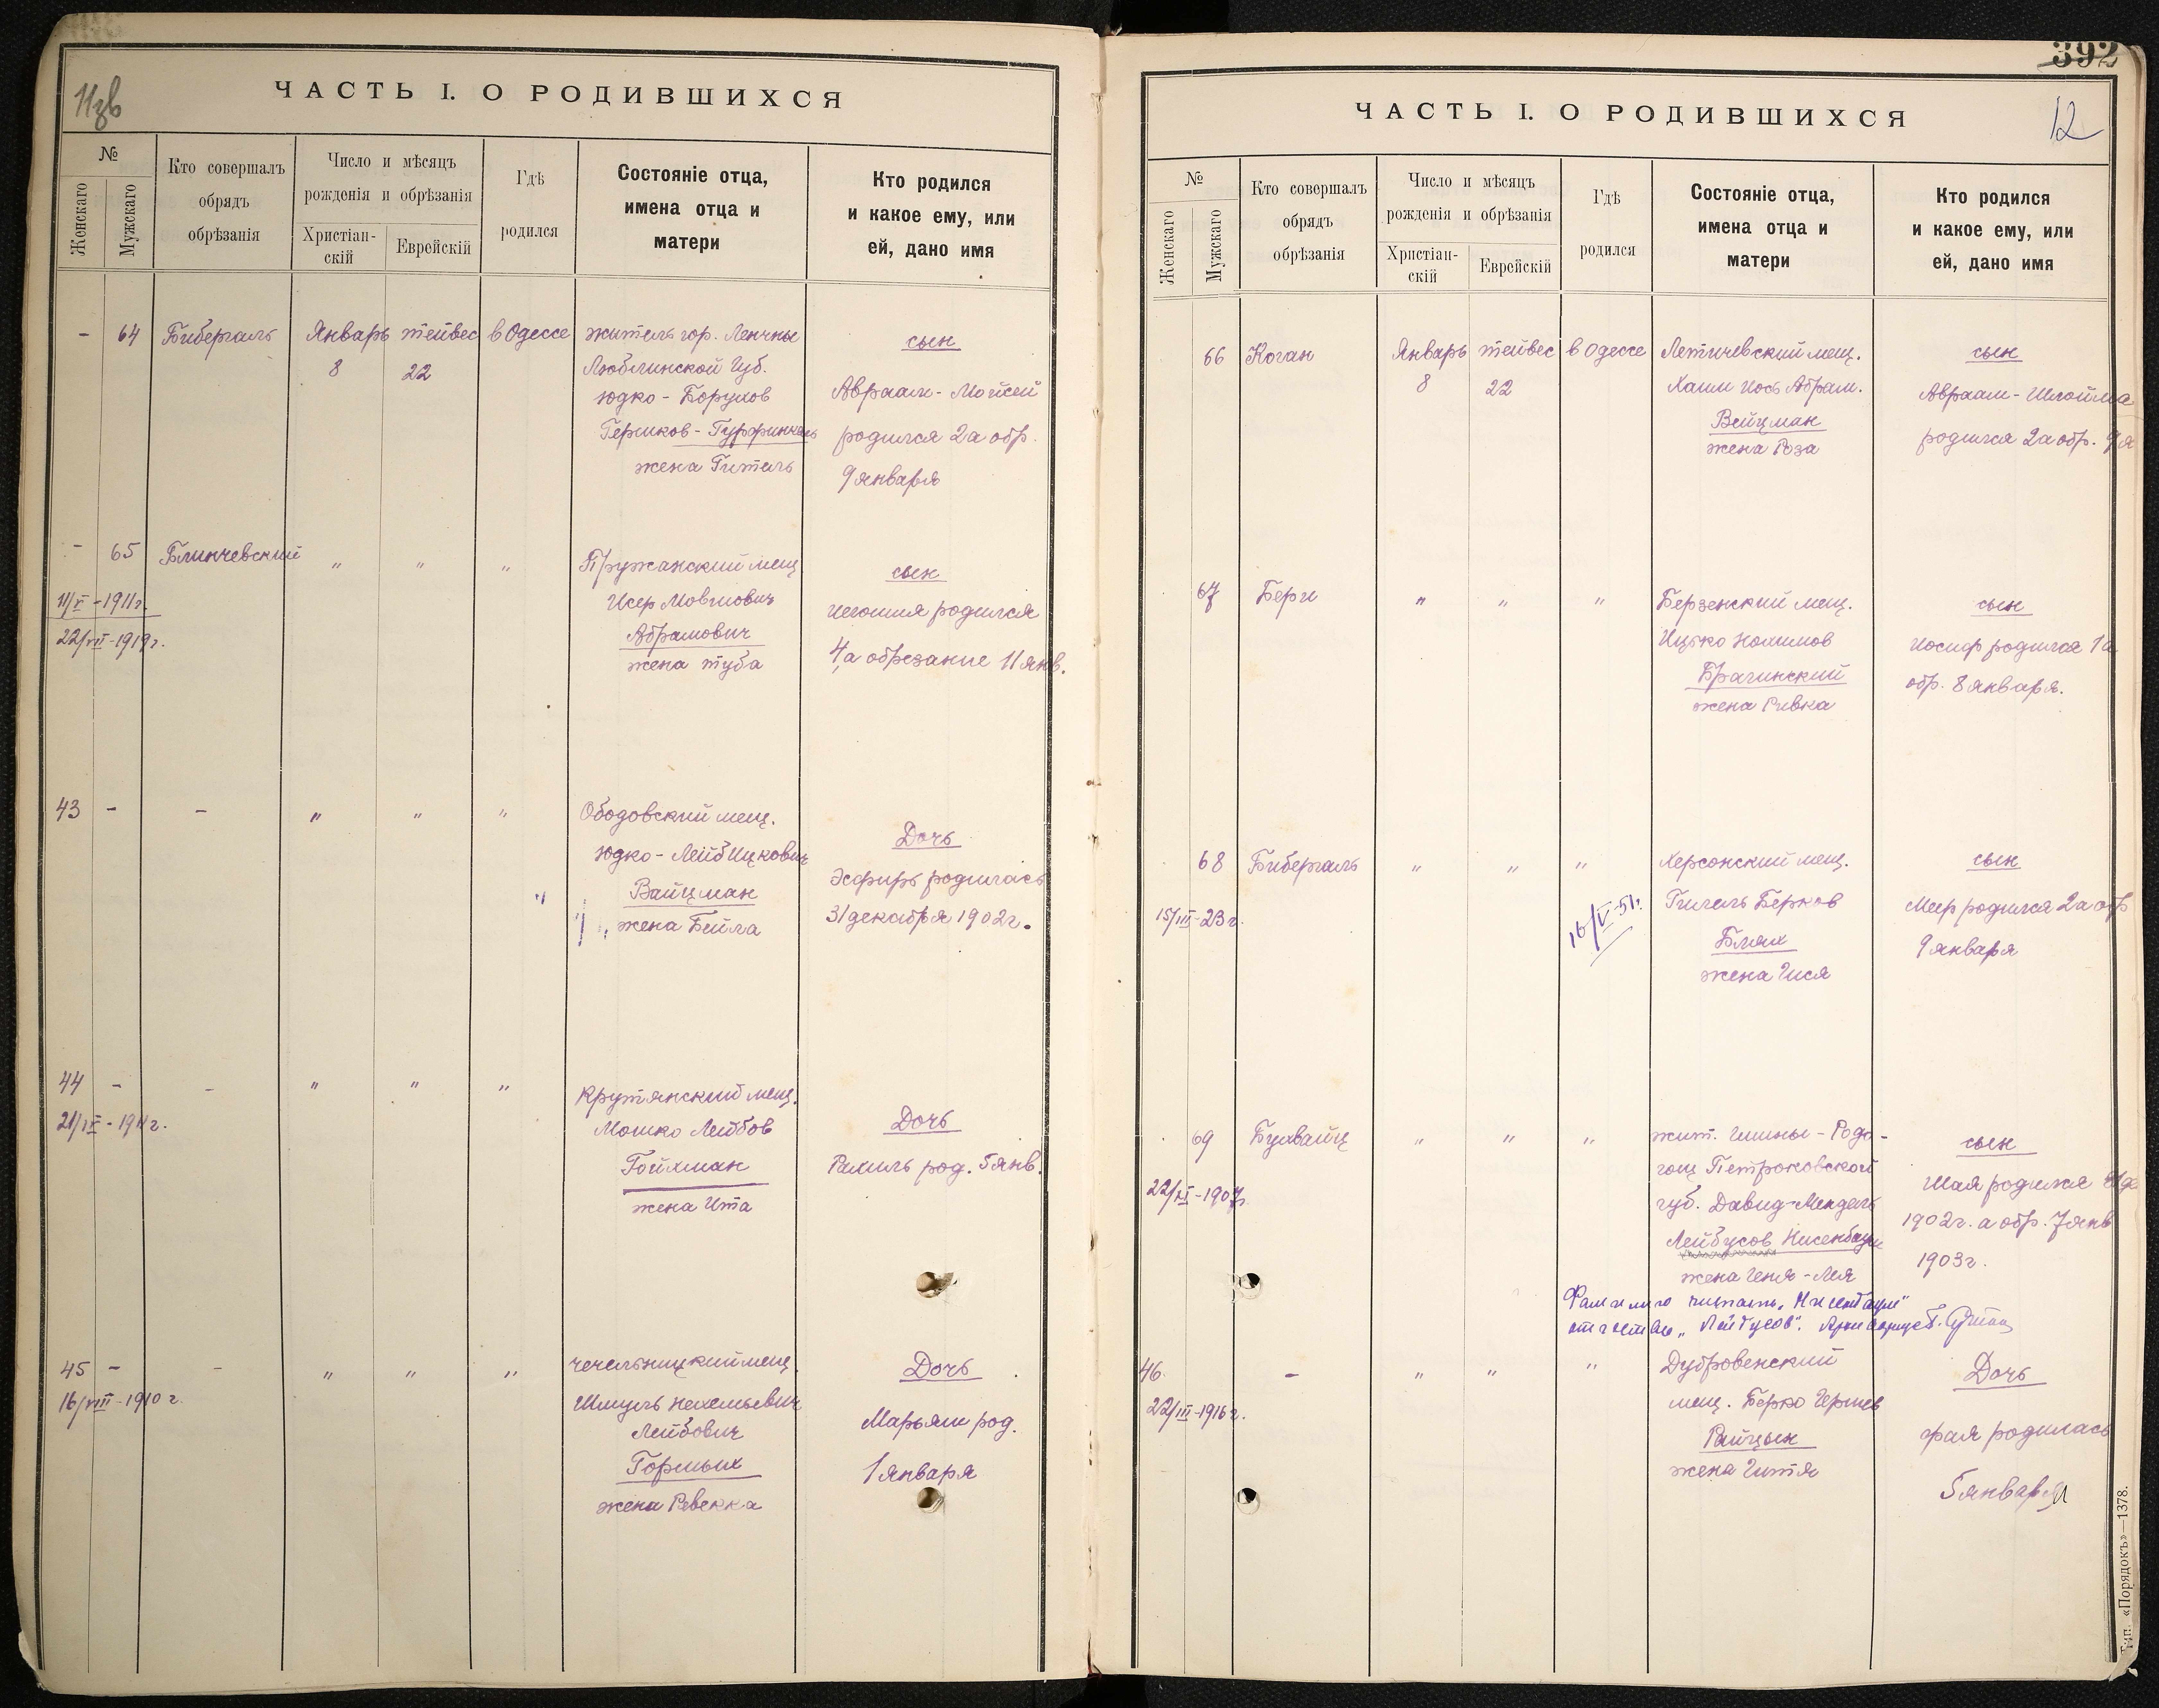 11зв
ЧАСТЬ I. О РОДИВШИХСЯ
№
Женскаго
Мужскаго
Кто совершалъ
обрядъ
обрѣзанія
Число и мѣсяцъ
рожденія и обрѣзанія
Христіан-
скій
Еврейскій
Гдѣ
родился
Состояніе отца,
имена отца и
матери
Кто родился
и какое ему, или
ей, дано имя
- 64 Бибергаль Январь тейвес в Одессе
8 22
житель гор. Ленчны
Люблинской Губ.
Юдко - Борухов
Гершков - Гурфинкель
жена Гитель
сын
Авраам - Мойсей
родился 2 а обр.
9 января
- 65 Блинчевский " " "
11/V - 1911 г.
22/VII - 1919 г.
Пружанский мещ
Исер Мовшович
Абрамович
жена Туба
сын
Иегошия родился
4, а обрезание 11 янв.
43 - - " " "
Ободовский мещ.
Юдко - Лейб Ицкович
Вайцман
жена Бейла
Дочь
Эсфирь родилась
31 декабря 1902 г.
44 - - " " "
21/IX - 1911 г.
Крутянский мещ.
Мошко Лейбов
Гойхман
жена Ита
Дочь
Рахиль род. 5 янв.
45 - - " " "
16/VIII - 1910 г.
Чечельницкий мещ.
Шмуль Нехемьевич
Лейбович
Горшых
жена Ревекка
Дочь
Марьям род.
1 января
392
12
ЧАСТЬ I. О РОДИВШИХСЯ
№
Женскаго
Мужскаго
Кто совершалъ
обрядъ
обрѣзанія
Число и мѣсяцъ
рожденія и обрѣзанія
Христіан-
скій
Еврейскій
Гдѣ
родился
Состояніе отца,
имена отца и
матери
Кто родился
и какое ему, или
ей, дано имя
66 Коган Январь тейвес в Одессе
8 22
Летичевский мещ.
Хаим Иось Абрам.
Вейцман
жена Роза
сын
Авраам - Шлойма
родился 2 а обр. 9 я
67 Берг " " "
Берзенский мещ.
Ицько Нохимов
Брагинский
жена Ривка
сын
Иосиф родился 1 а
обр. 8 января.
68 Бибергаль " " "
15/III - 23 г.
16/V - 51 г.
Херсонский мещ.
Гилель Берков
Блях
жена Гися
сын
Меер родился 2 а обр
9 января
69 Бухвайц " " "
22/XI - 1907 г.
жит. Гмины - Радо-
гощ Петроковской
губ. Давид-Мендель
Лейбусов Нисенбаум
жена Геня - Лея
сын
Шая родился
1902 г. а обр. 7 янв
1903 г.
Фамилию читать "Нисенбаум"
отчество "Лейбусов".
46. - " " "
22/III - 1916 г.
Дубровенский
мещ. Берко Гершев
Райцын
жена Гитя
Дочь
Фая родилась
5 января
Тип. «Порядокъ»—1378.